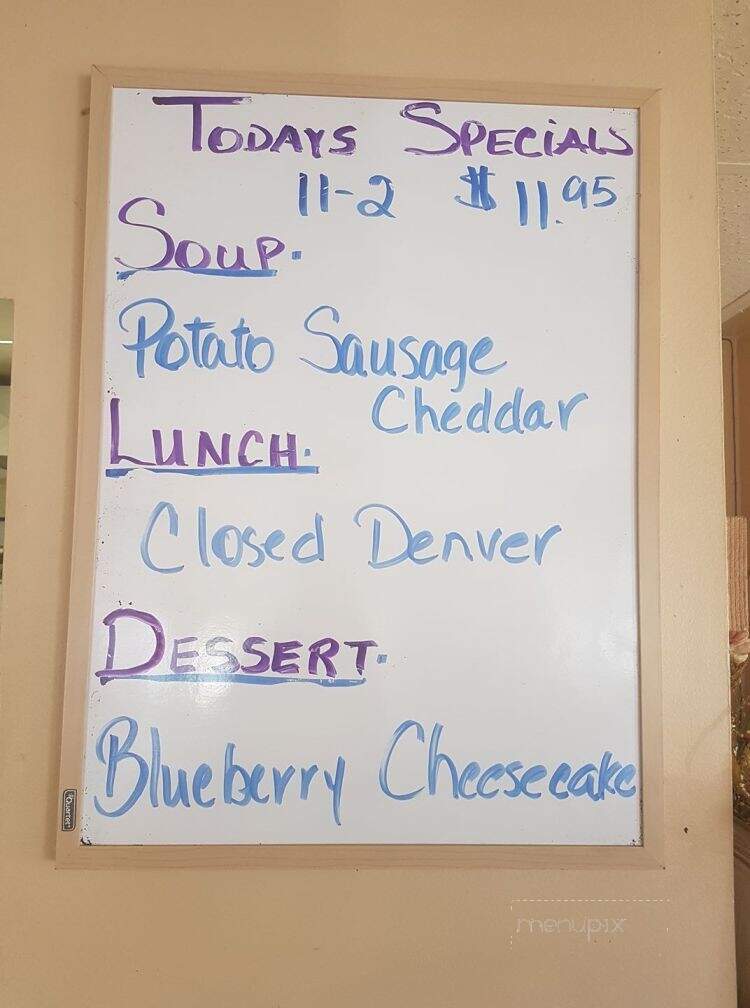 TODAYS SPECIALS
11-2 $11.95
SOUP.
Potato Sausage
Cheddar
LUNCH.
Closed Denver
DESSERT.
Blueberry Cheesecake
Quartet
menupix